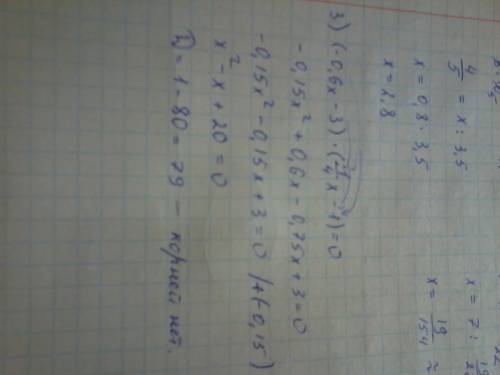 4/5 = x : 3,5
x = 0,8 · 3,5
x = 2,8
3) (-0,6x - 3) · (1/4x - 1) = 0
-0,15x² + 0,6x - 0,75x + 3 = 0
-0,15x² - 0,15x + 3 = 0 /:(-0,15)
x² - x + 20 = 0
D = 1 - 80 = 79 — корней нет.
x = 7 :
x = 19/154 ≈